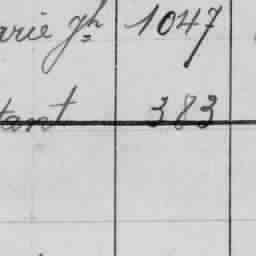 arie gh 1047
tant 383